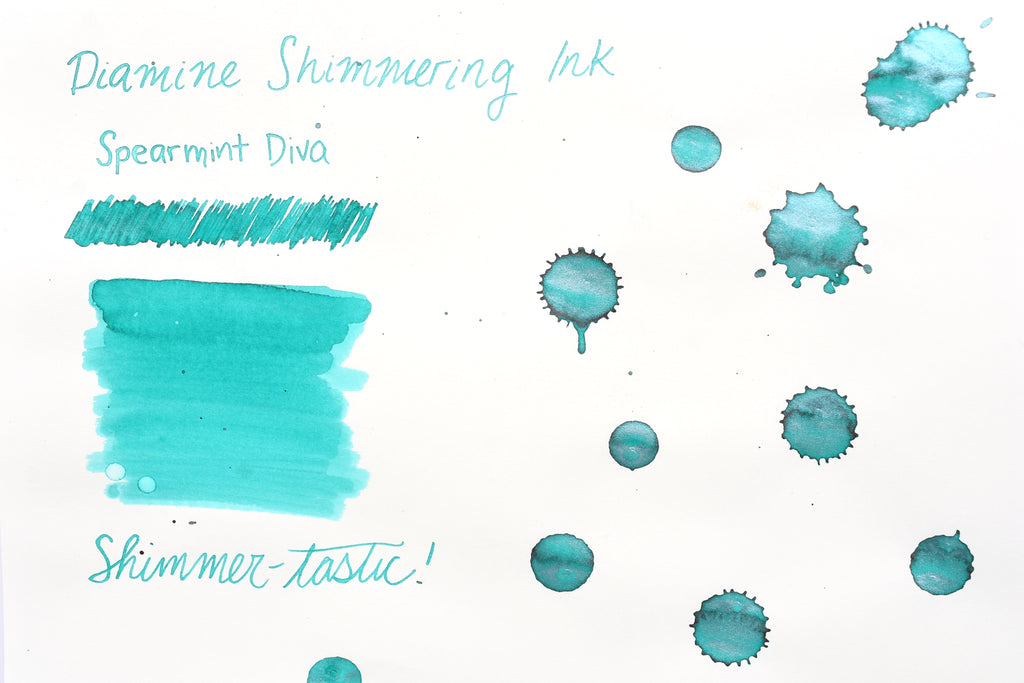 Diamine Shimmering Ink
Spearmint Diva
Shimmer-tastic!